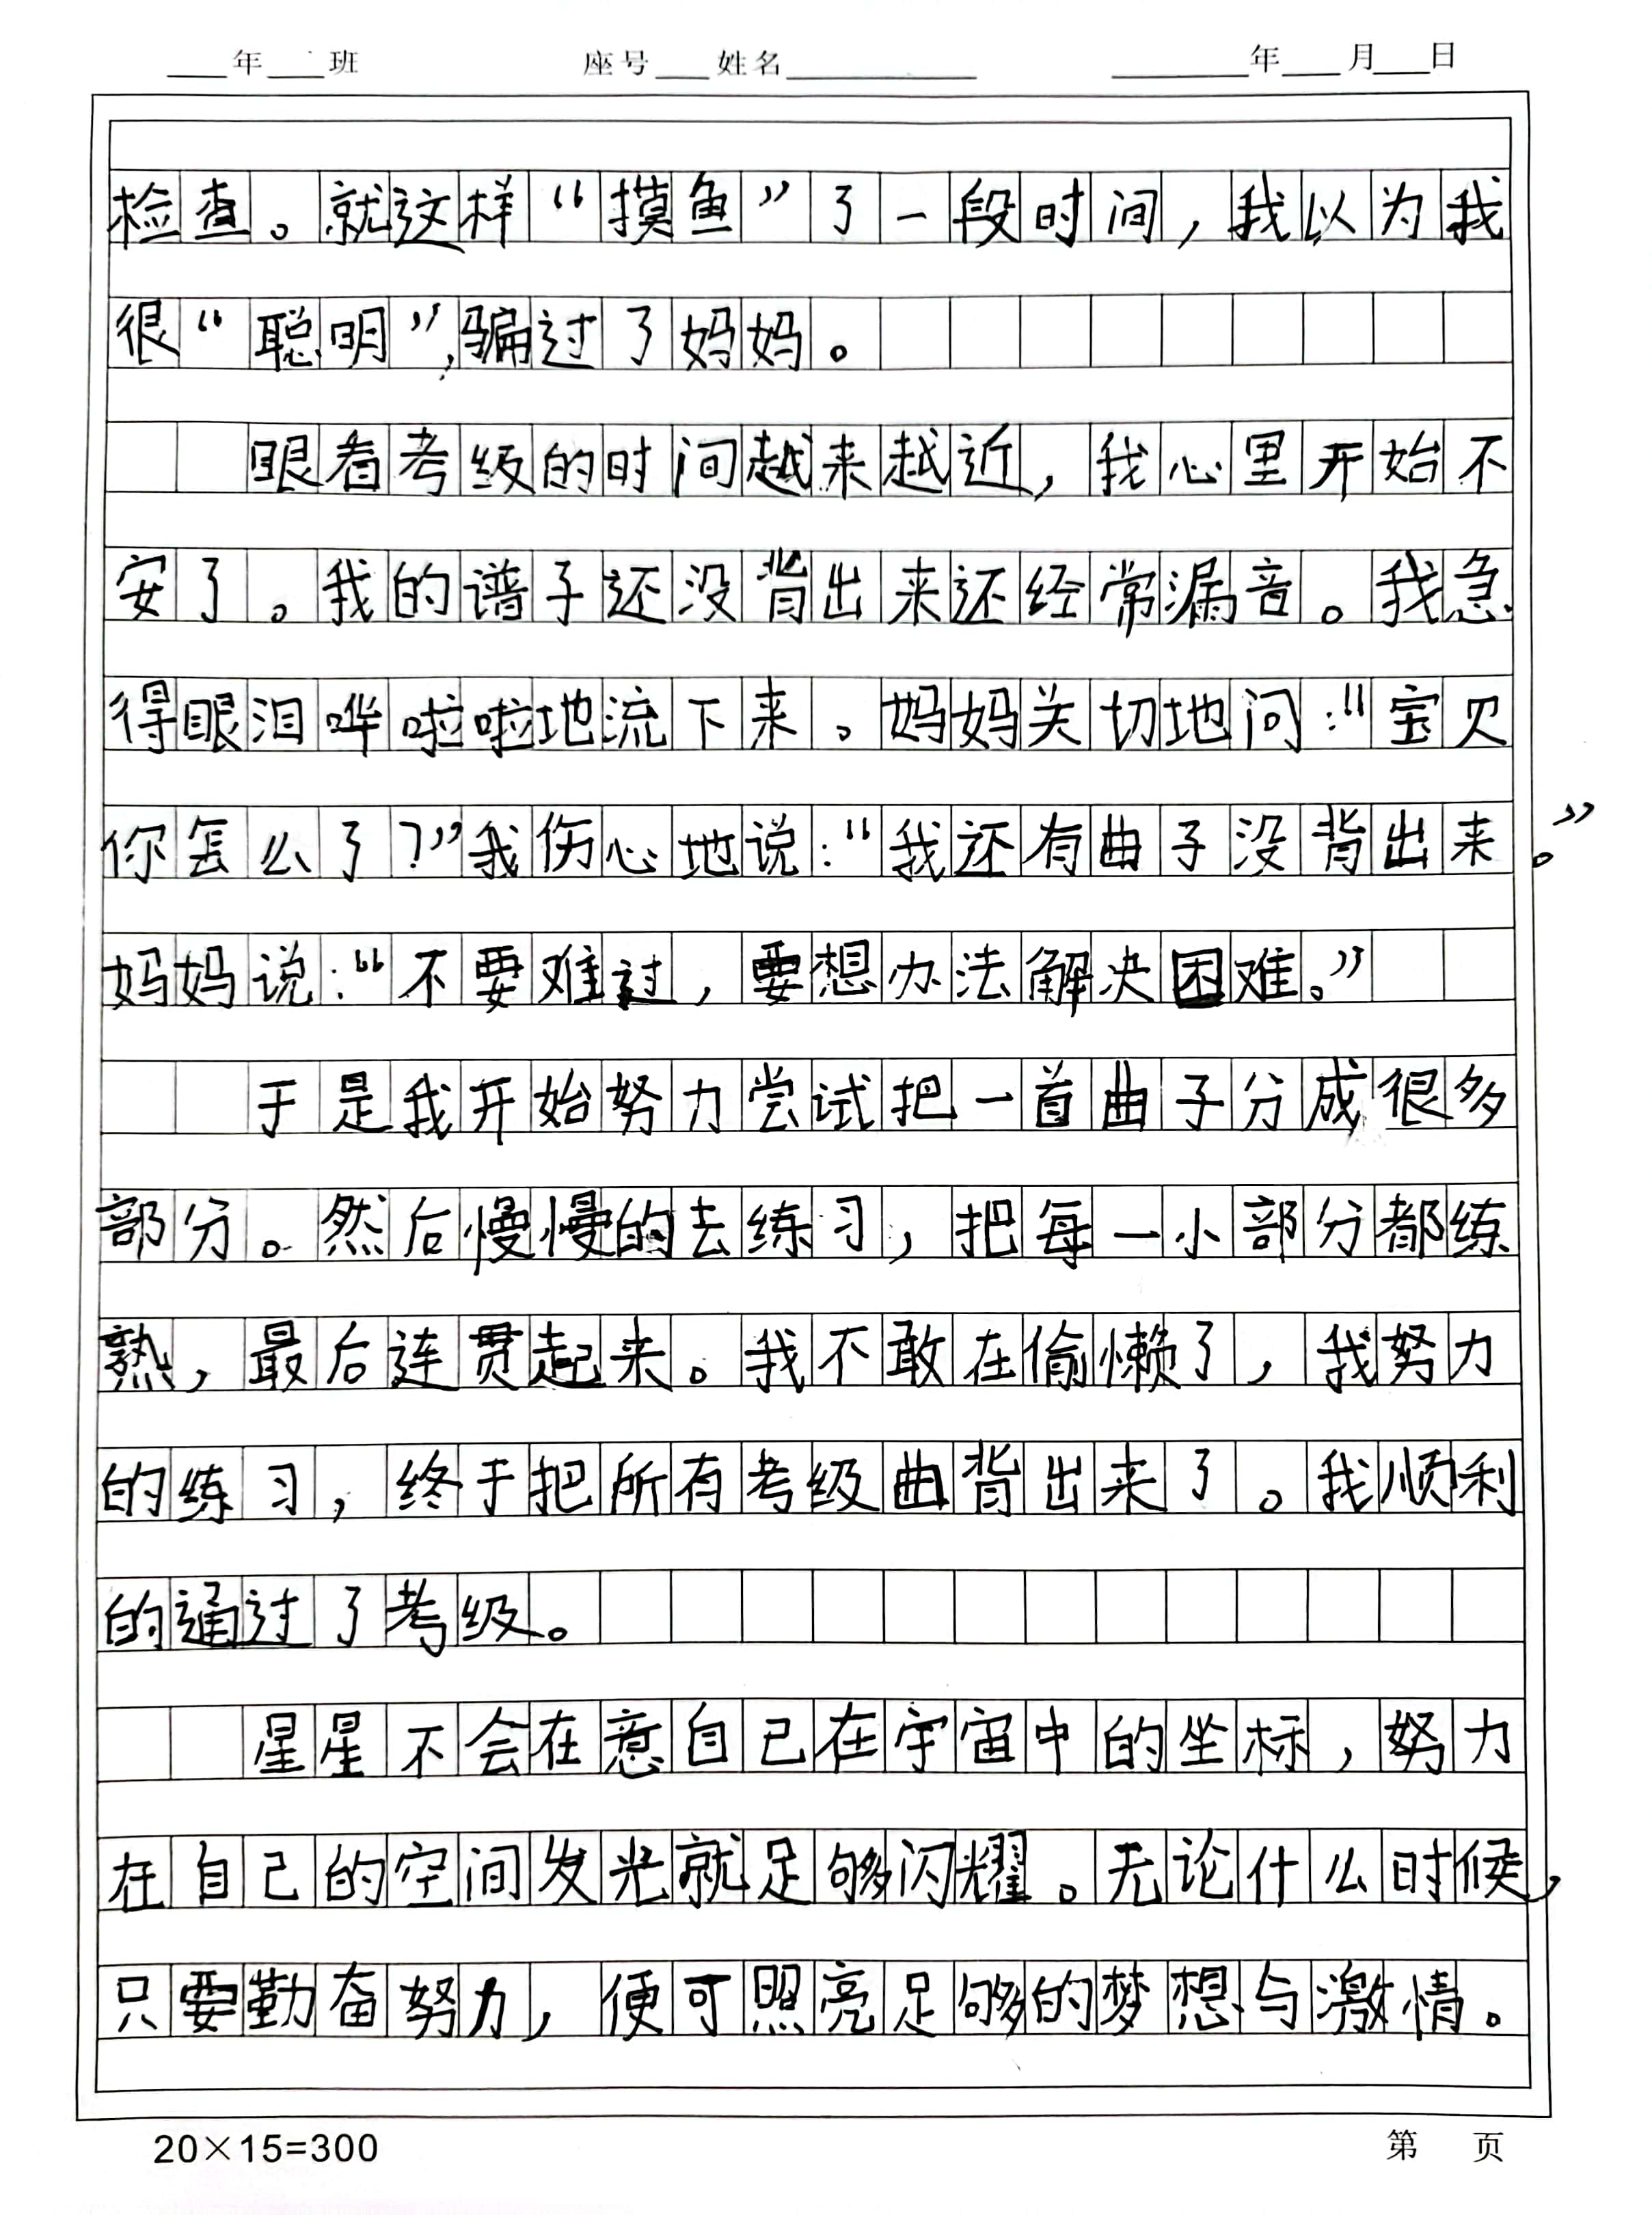 ____年____班 座号____姓名____________ __________年____月____日
检查。就这样“摸鱼”了一段时间，我以为我
很“聪明”，骗过了妈妈。
眼看考级的时间越来越近，我心里开始不
安了。我的谱子还没背出来还经常漏音。我急
得眼泪哗啦啦地流下来。妈妈关切地问：“宝贝
你怎么了？”我伤心地说：“我还有曲子没背出来。”
妈妈说：“不要难过，要想办法解决困难。”
于是我开始努力尝试把一首曲子分成很多
部分。然后慢慢的去练习，把每一小部分都练
熟，最后连贯起来。我不敢在偷懒了，我努力
的练习，终于把所有考级曲背出来了。我顺利
的通过了考级。
星星不会在意自己在宇宙中的坐标，努力
在自己的空间发光就足够闪耀。无论什么时候，
只要勤奋努力，便可照亮足够的梦想与激情。
20×15=300 第 页